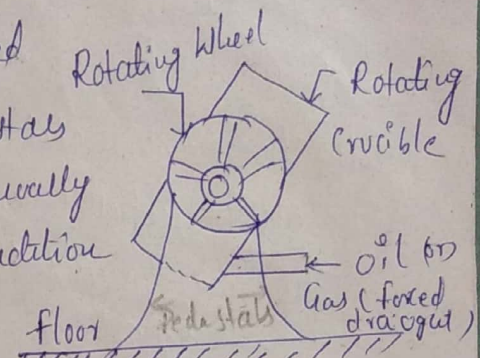 Rotating Wheel
Rotating
Crucible
Oil (or)
Gas (forced
draught)
Pedastals
floor